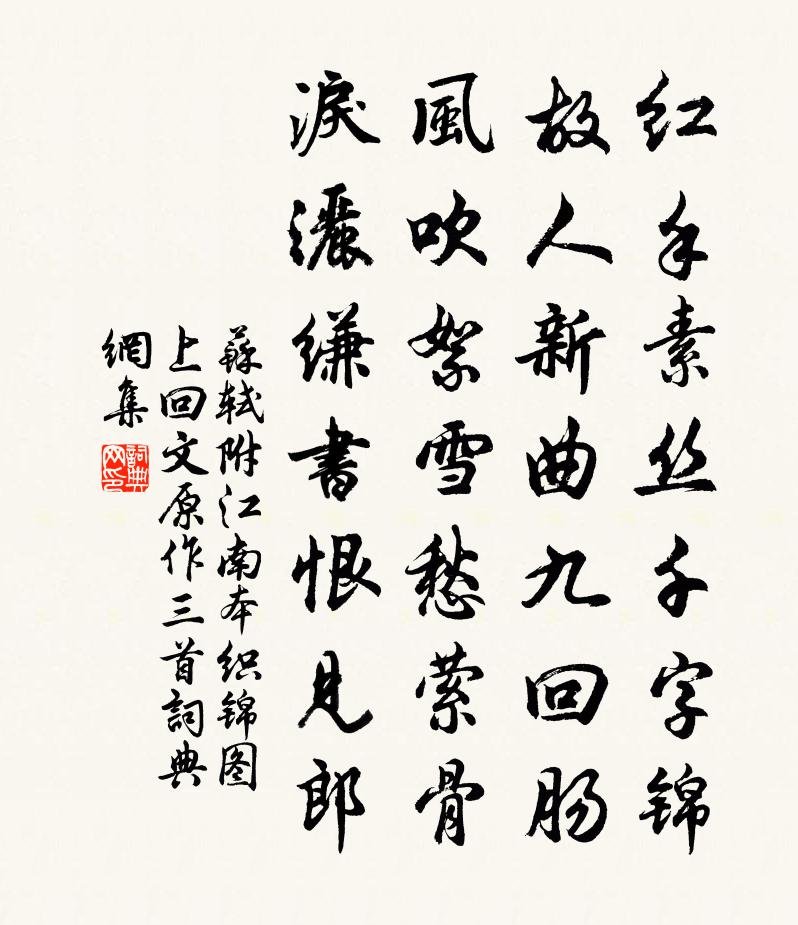 红手素丝千字锦
故人新曲九回肠
風吹絮雪愁萦骨
淚灑缣書恨見郎
蘇轼附江南本织锦图
上回文原作三首詞典
網集
詞典網印